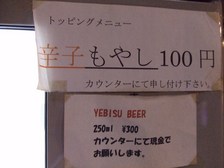 トッピングメニュー
辛子もやし100円
カウンターにて申し付け下さい。
YEBISU BEER
250ml ¥300
カウンターにて現金で
お願いします。